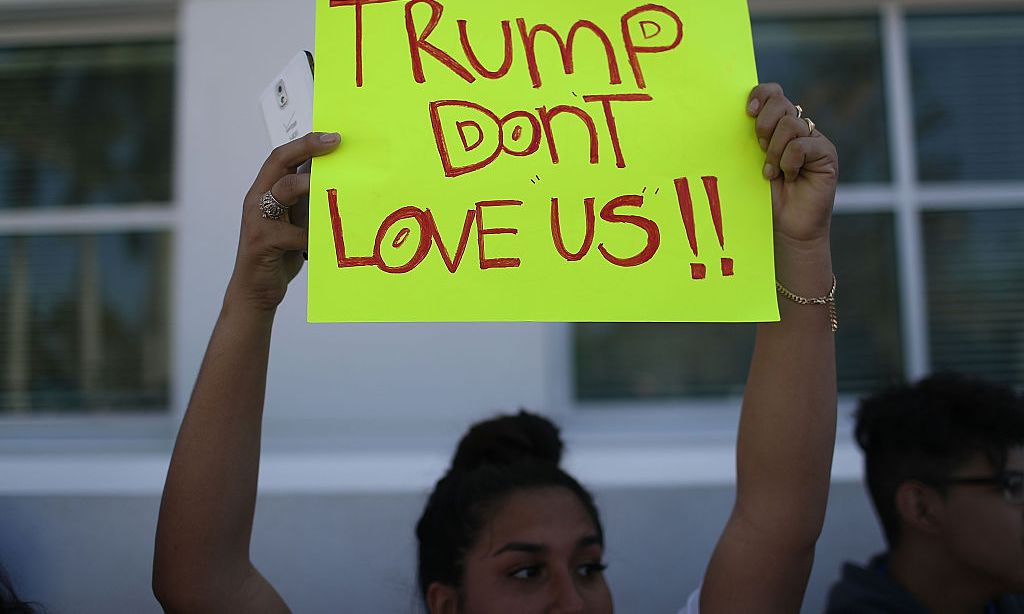 TRUMP
DON'T
LOVE "US"!!